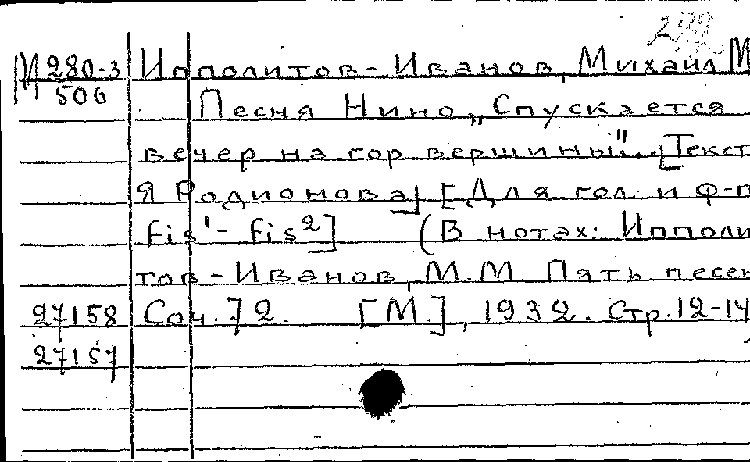 280-3 Ипполитов-Иванов, Михаил М
500
Песня Нино „Спускается
вечер на гор вершины". [Текст
Я Родионова] [Для гол. и ф-п
fis¹- fis²] (В нотах: Ипполи
тов-Иванов, М.М Пять песен
27158 Соч. 72. [М.], 1932. Стр. 12-14
27157